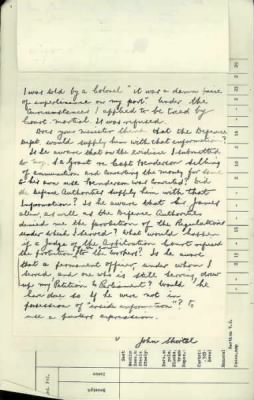 I was told by a Colonel "it was a damn piece
of impertinence on my part" Under the
circumstances I applied to be tried by
Court martial. It was refused.
Does your minister think that the Defence
Dept. would supply him with that information?
Is he aware that on the evidence I submitted
to Capt Henderson selling
of ammunition and converting the money for
his own use Henderson was cashiered? Did
the Defence Authorities supply him with that
Information? Is he aware that Sir James
as well as the Defence Authorities
denied me the protection of the Regulations
under which I served? What would happen
if a Judge of the Arbitration Court refused
the protection to the workers? Is he aware
that a permanent officer, under whom I
served, and one who is still serving
up my Petition to Parliament? Would he
have done so if he were not in
possession of "inside information"? to
use a posters expression.
John Shortel